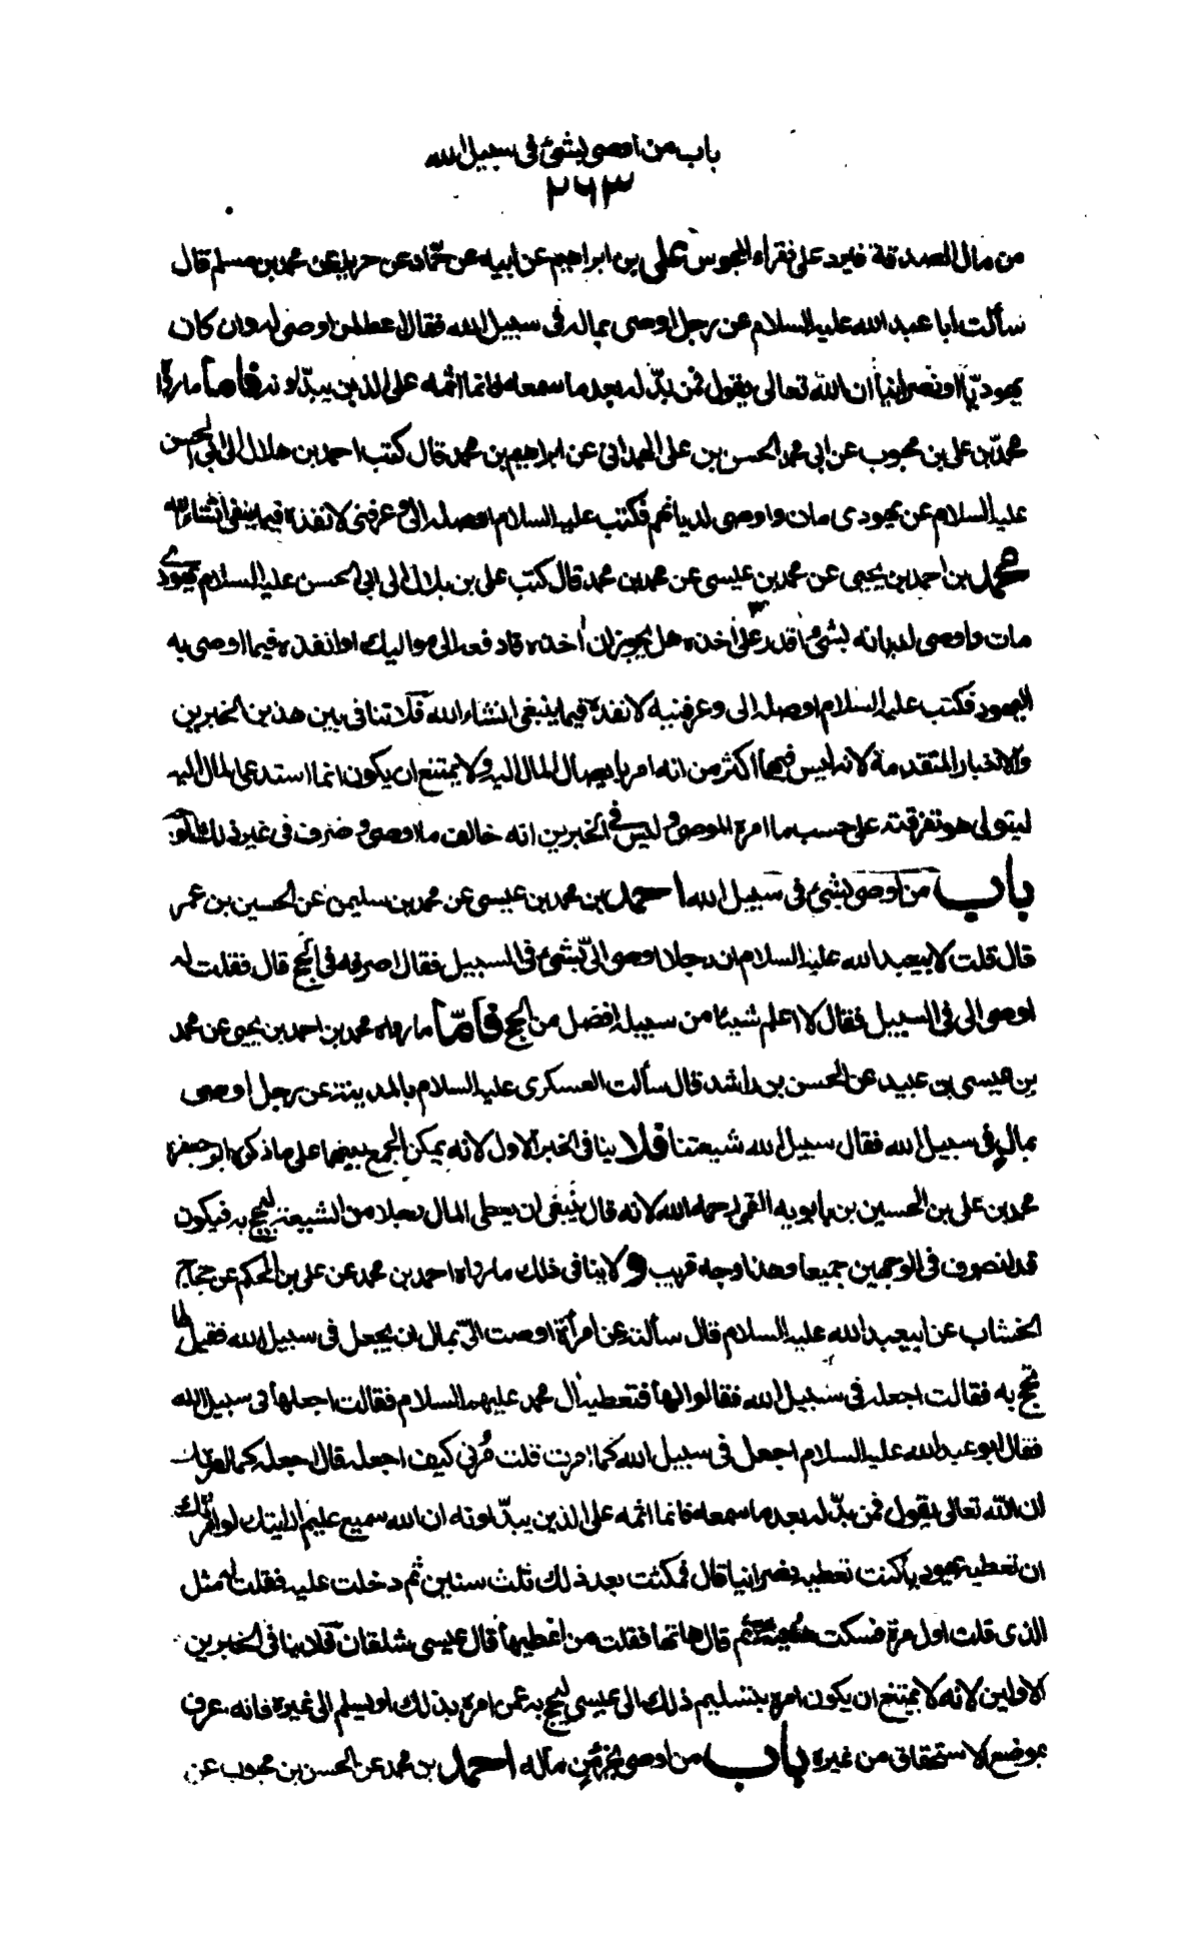 باب من اوصى بشئ فى سبيل الله
٢٦٣
من مال الصدقة فليرد على فقراء المجوس على بن ابراهيم عن ابيه عن حمّاد عن حريز عن محمد بن مسلم قال
سألت ابا عبد الله عليه السلام عن رجل اوصى بماله فى سبيل الله فقال اعطه لمن اوصى له وان كان
يهوديّا او نصرانيا ان الله تعالى يقول فمن بدّله بعد ما سمعه فانما اثمه على الذين يبدّلونه فاما ما رواه
محمّد بن على بن محبوب عن ابى محمد الحسن بن على الهمدانى عن ابراهيم بن محمد قال كتب احمد بن هلال الى ابى الحسن
عليه السلام عن يهودى مات واوصى لديانهم فكتب عليه السلام اوصله الىّ وعرفنى لانفذه فيما ينبغى انشاء الله
محمد بن احمد بن يحيى عن محمد بن عيسى عن محمد بن محمد قال كتب على بن بلال الى ابى الحسن عليه السلام يهودى
مات واوصى لديانه بشئ اقدر على اخذه هل يجوز ان اخذه فادفعه الى مواليك او انفذه فيما اوصى به
اليهود فكتب عليه السلام اوصله الى وعرفنيه لانفذه فيما ينبغى انشاء الله فلا تنافى بين هذين الخبرين
والاخبار المتقدمة لانه ليس فيها اكثر من انه امر بايصال المال اليه ولا يمتنع ان يكون انما استدعى المال اليه
ليتولى هو تفرقته على حسب ما امره الموصى وليس فى الخبرين انه خالف ما اوصى وضرف فى غير ذلك
باب من اوصى بشئ فى سبيل الله احمد بن محمد بن عيسى عن محمد بن سليمن عن الحسين بن عمر
قال قلت لابيعبد الله عليه السلام ان رجلا اوصى الىّ بشئ فى السبيل فقال اصرفه فى الحج قال فقلت له
اوصى الى فى السبيل فقال لا اعلم شيئا من سبيله افضل من الحج فامّا ما رواه محمد بن احمد بن يحيى عن محمد
بن عيسى بن عبيد عن الحسن بن راشد قال سألت العسكرى عليه السلام بالمدينة عن رجل اوصى
بمال فى سبيل الله فقال سبيل الله شيعتنا فلا ينافى الخبر الاول لانه يمكن الجمع بينهما على ما ذكره ابو جعفر
محمد بن على بن الحسين بن بابويه القمى رحمه الله لانه قال ينبغى ان يعطى المال رجلا من الشيعة ليحج به فيكون
قد انصرف فى الوجهين جميعا وهذا وجه قريب ولا ينافى ذلك ما رواه احمد بن محمد عن على بن الحكم عن حجاج
الخشاب عن ابيعبد الله عليه السلام قال سألته عن امرأة اوصت الىّ بمال ان يجعل فى سبيل الله فقيل لها
نحج به فقالت اجعله فى سبيل الله فقالوا لها فنعطيه آل محمد عليهم السلام فقالت اجعلها فى سبيل الله
فقال ابو عبد الله عليه السلام اجعل فى سبيل الله كما امرت قلت مُرنى كيف اجعله قال اجعله كما امرتك
ان الله تعالى يقول فمن بدّله بعد ما سمعه فانما اثمه على الذين يبدّلونه ان الله سميع عليم ارايتك لو امرتك
ان تعطيه يهوديا كنت تعطيه نصرانيا قال فمكثت بعد ذلك ثلث سنين ثم دخلت عليه فقلت له مثل
الذى قلت اول مرة فسكت ثم قال هاتها فقلت من اعطيها قال عيسى شلقان فلا ينافى الخبرين
الاولين لانه لا يمتنع ان يكون امره بتسليم ذلك الى عيسى ليحج به عمن امره بذلك او يسلم الى غيره فانه عرف
بموضع الاستحقاق من غيره باب من اوصى بجزء من ماله احمد بن محمد عن الحسن بن محبوب عن